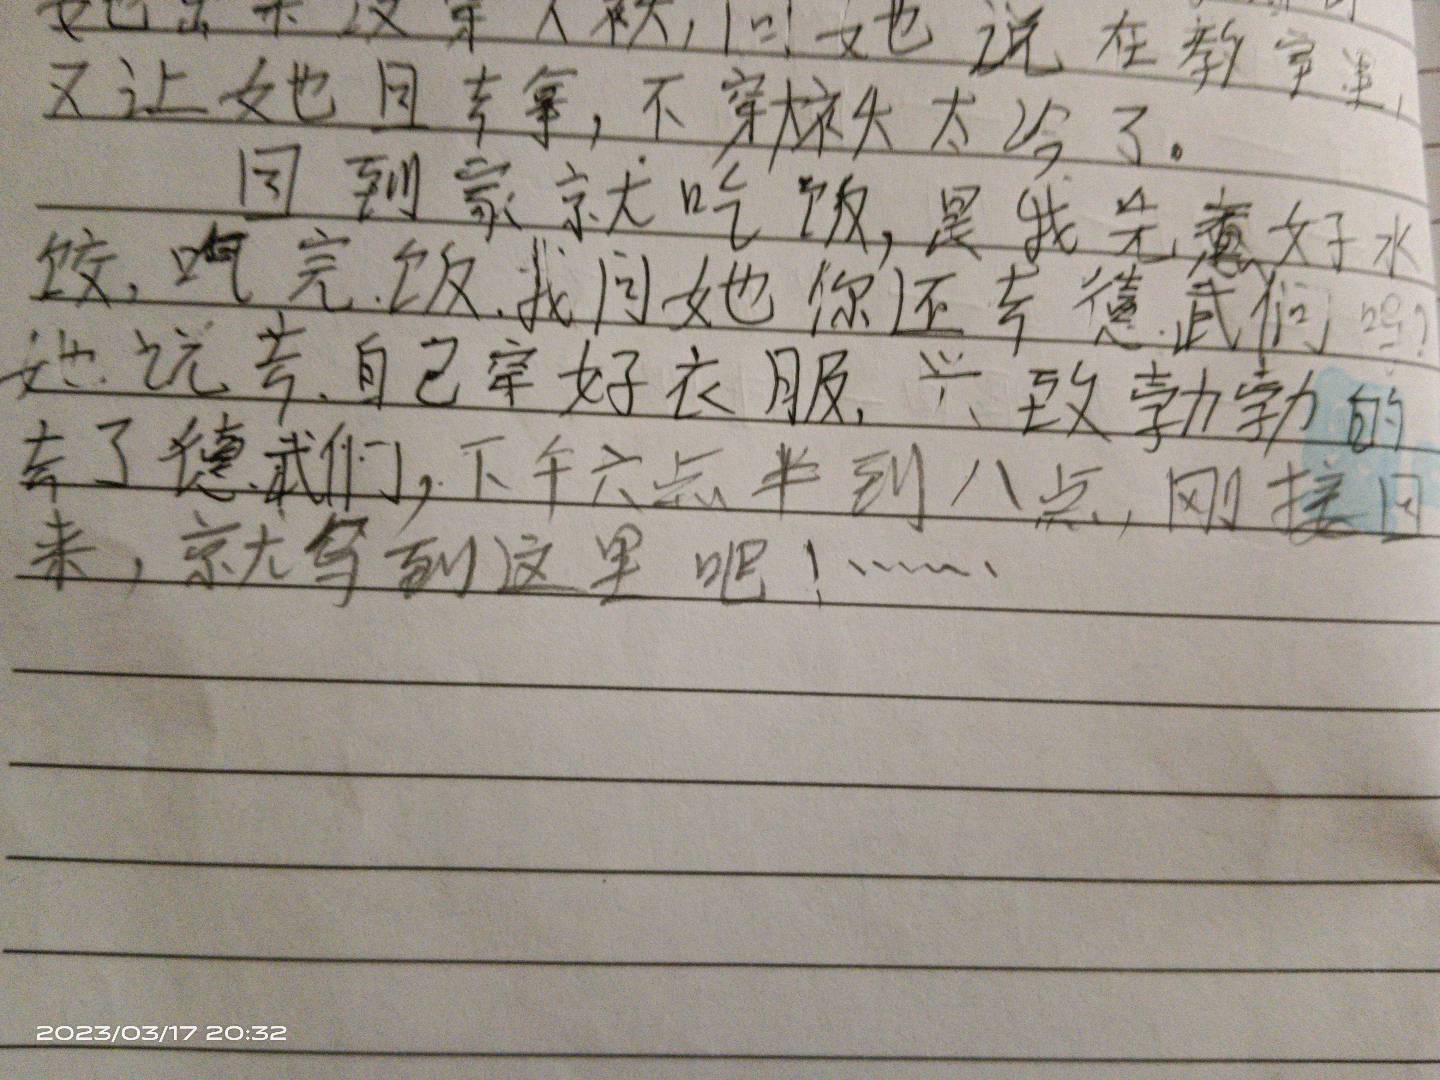 她出来没穿大袄,问她说在教室里,
又让她回去拿,不穿袄太冷了。
回到家就吃饭,是我先煮好水
饺,吃完饭.我问她你还去德武们吗?
她说去.自己穿好衣服.兴致勃勃的
去了德武们,下午六点半到八点,刚接回
来,就写到这里吧!……
2023/03/17 20:32